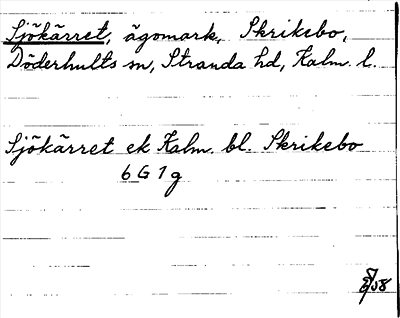 Sjökärret, ägomark, Skrikebo,
Döderhults sn, Stranda hd, Kalm. l.
Sjökärret ek Kalm. bl. Skrikebo
6 G 1 g